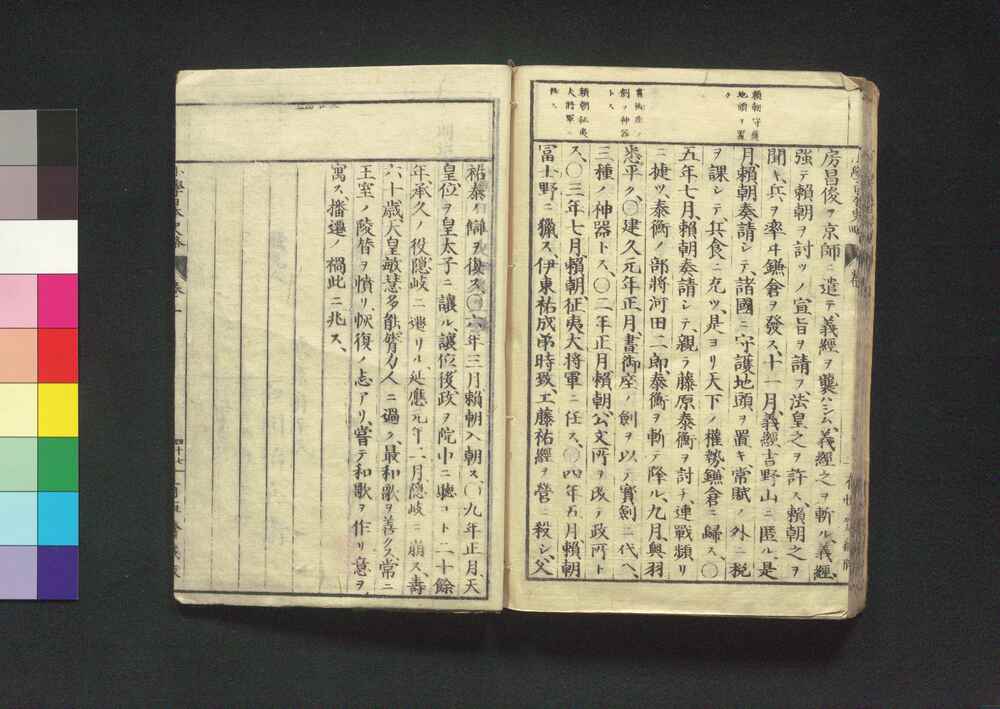 頼朝守護
地頭ヲ置
ク
劔ヲ神器
トス
頼朝征夷
大將軍ニ
任ス
房昌俊ヲ京師ニ遣テ、義經ヲ襲ハシム、義經之ヲ斬ル、義經、
強テ頼朝ヲ討ツノ宣旨ヲ請フ、法皇之ヲ許ス、頼朝之ヲ
聞キ、兵ヲ率ヰ鎌倉ヲ發ス、十一月、義經吉野山ニ匿ル、是
月、頼朝奏請シテ、諸國ニ守護地頭ヲ置キ、常賦ノ外ニ税
ヲ課シテ兵食ニ充ツ、是ヨリ天下ノ權勢鎌倉ニ歸ス、〇
五年七月、頼朝奏請シテ、親ラ藤原泰衡ヲ討チ、連戰頻リ
ニ捷ツ、泰衡ノ部將河田二郎、泰衡ヲ斬テ降ル、九月、奥羽
悉平ク、〇建久元年正月、晝御座ノ劔ヲ以テ寳劔ニ代ヘ、
三種ノ神器トス、〇二年正月頼朝公文所ヲ改テ政所ト
ス、〇三年七月、頼朝、征夷大將軍ニ任ス、〇四年五月頼朝
冨士野ニ獵ス、伊東祐成弟時致、工藤祐經ヲ營ニ殺シ、父
祐泰ノ讎ヲ復ス、〇六年三月頼朝入朝ス、〇九年正月、天
皇位ヲ皇太子ニ讓ル、讓位後政ヲ院中ニ聽コト二十餘
年承久ノ役隠岐ニ遷リル、延應元年二月隠岐ニ崩ス、壽
六十歳、天皇敏慧多能膂力人ニ過ク、最和歌ヲ善クス、常ニ
王室ノ陵替ヲ憤リ、恢復ノ志アリ、嘗テ和歌ヲ作リ意ヲ
寓ス、播遷ノ禍此ニ兆ス、
四十七